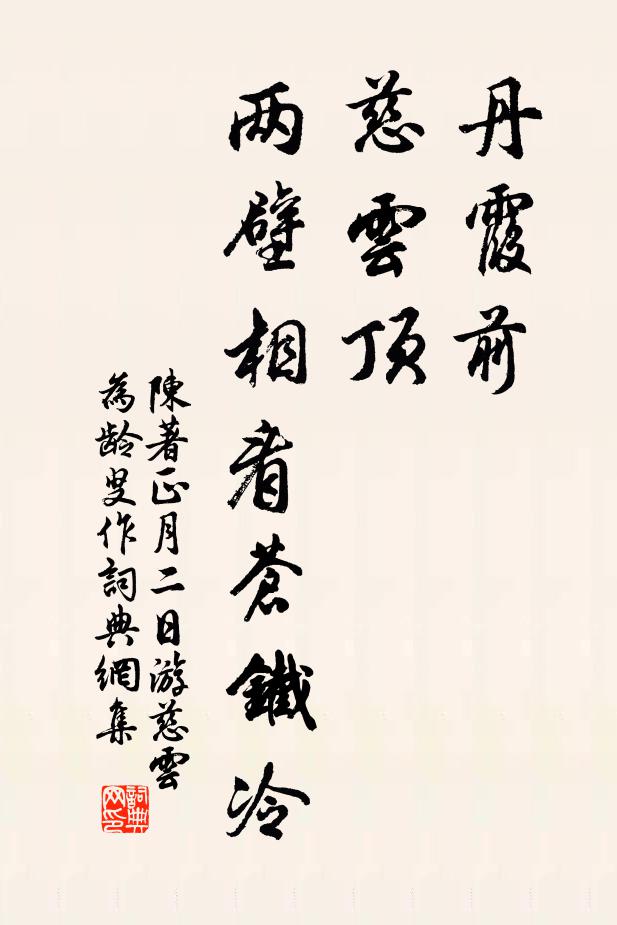 丹霞前
慈雲頂
两壁相看蒼鐵冷
陳著正月二日游慈雲
為龄叟作詞典網集
詞典网印